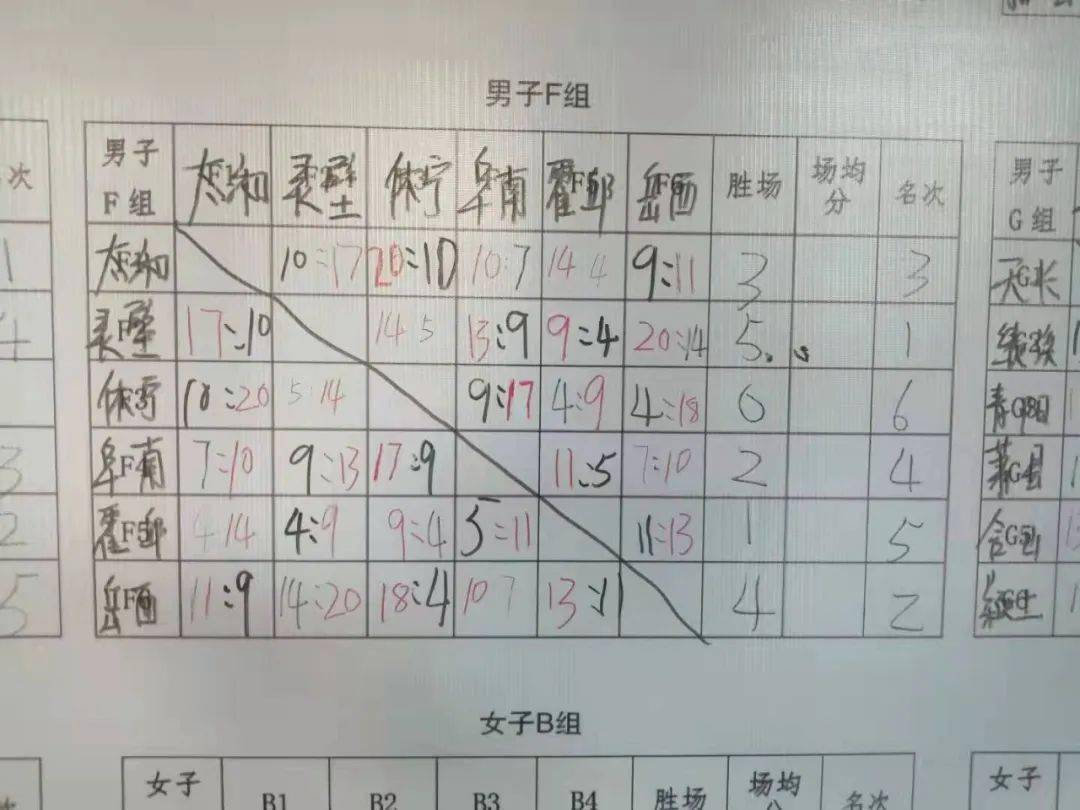 男子F组
男子 F组 太湖 灵璧 休宁 阜南 霍邱 岳西 胜场 场均分 名次
太湖 10:17 20:10 10:7 14 4 9:11 3 3
灵璧 17:10 14 5 13:9 9:4 20:14 5 1
休宁 10:20 5:14 9:17 4:9 4:18 0 6
阜南 7:10 9:13 17:9 11:5 7:10 2 4
霍邱 4 14 4:9 9:4 5:11 11:13 1 5
岳西 11:9 14:20 18:4 10 7 13:11 4 2
名次
1
4
3
2
5
男子 G组
天长
青阳
萧县
含山
女子B组
女子 B1 B2 B3 B4 胜场 场均 名次
女子